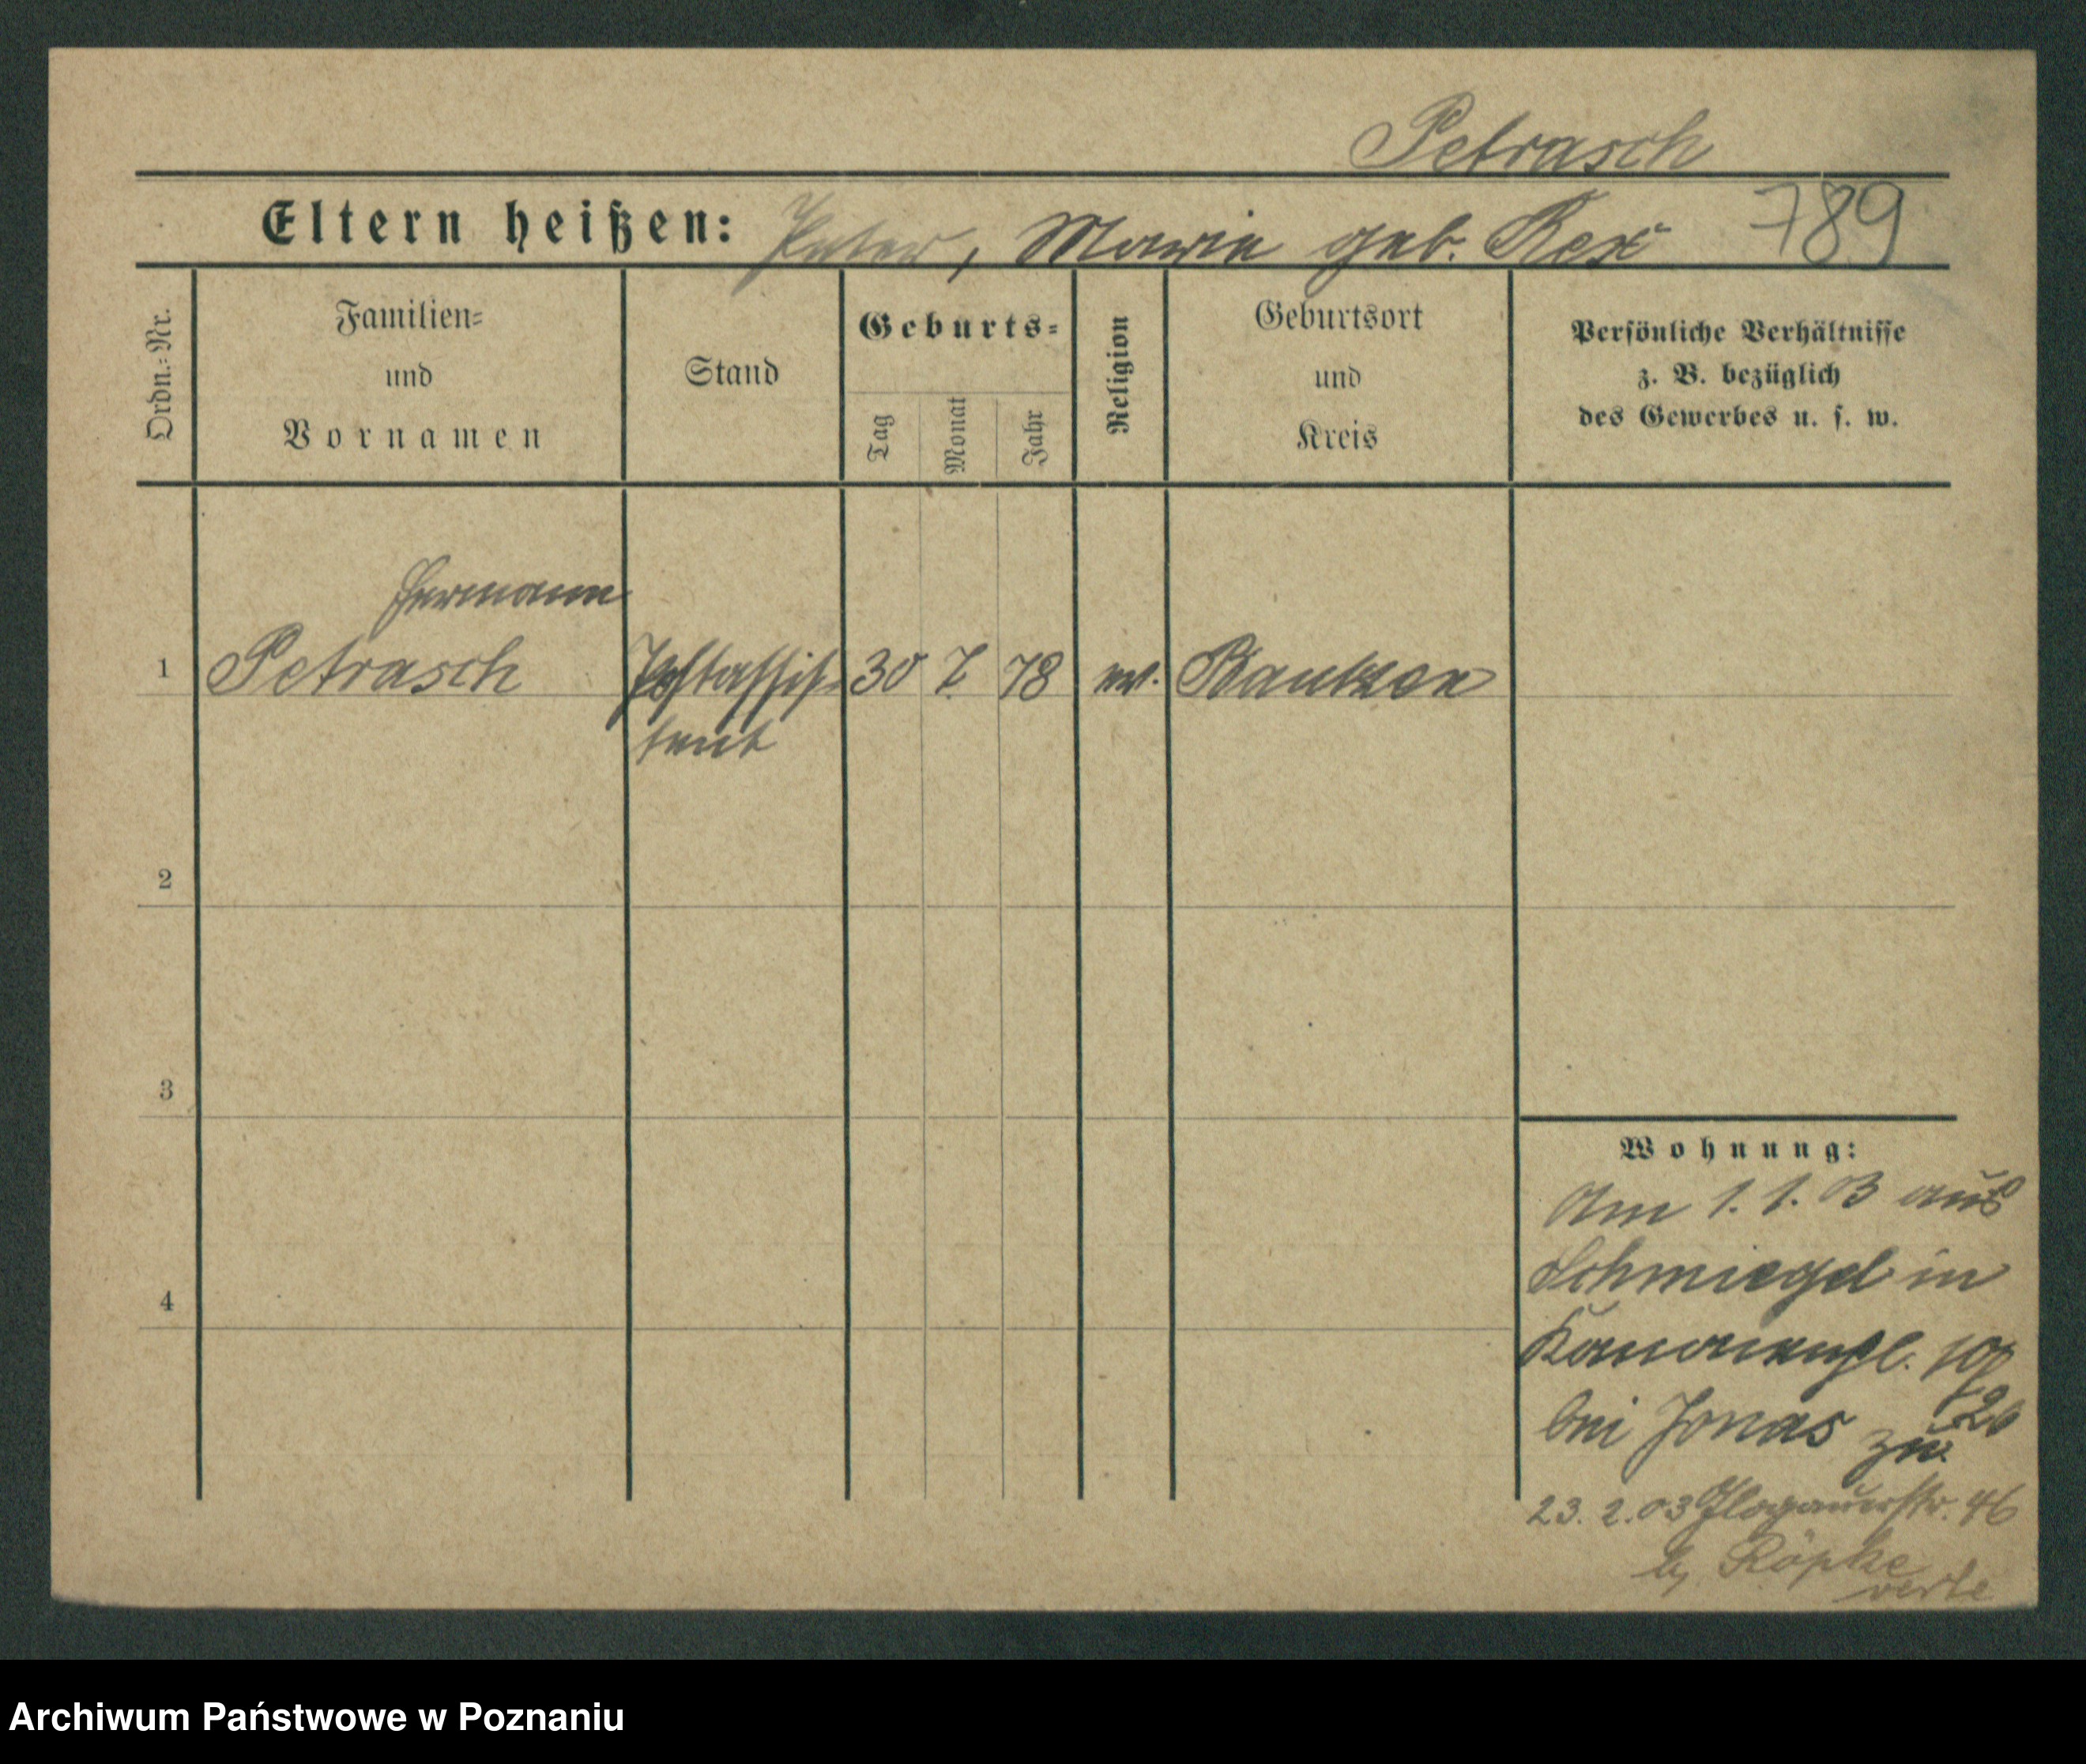 Petrasch
Eltern heißen: Peter, Marie geb. Rex 789
Ordn.=Nr.
Familien=
und
Vornamen
Stand
Geburts=
Tag
Monat
Jahr
Religion
Geburtsort
und
Kreis
Persönliche Verhältnisse
z. B. bezüglich
des Gewerbes u. s. w.
Hermann
1 Petrasch Postassis= 30 7. 78 ev. Bautzen
tent
2
3
4
Wohnung:
Am 1. 1. 03 aus
Schmiegel in
bei Jonas zu.
23. 2. 03 Glogauerstr. 46
b, Röpke
verte
Archiwum Państwowe w Poznaniu